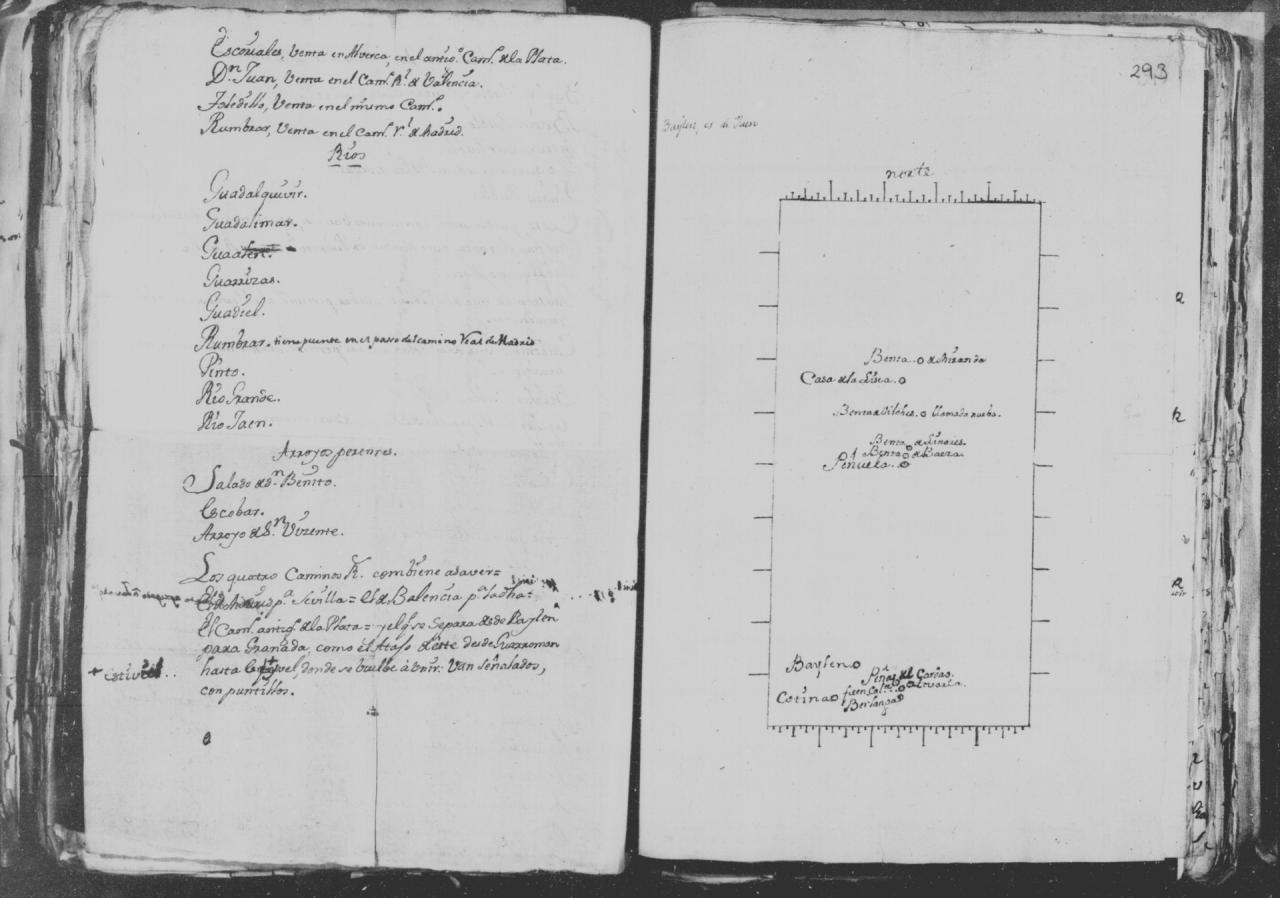 Escoriales, Venta en Alverca, en el antigº. Camº. de la Plata.
Dn. Juan, Venta en el Camº. Rl. de Valencia.
Toledillo, Venta en el mismo Camº.
Rumbrar, Venta en el Camº. rl. de Madrid.
Rios
Guadalquivir.
Guadalimar.
Guarrizas.
Guadiel.
Rumbrar. tiene puente en el passo del camino Real de Madrid
Pinto.
Rio Grande.
Rio Jaen.
Arroyos perennes.
Salado de Dn. Benito.
Escobar.
Arroyo de Sn. Vizente.
Los quatro Caminos Rs. combiene a saver=
pª. Sevilla = el de Balencia pª.
el Camº. antigº. de la Plata = y el qe. se separa desde Baylen
para Granada, como el Atajo de este desde Guarroman
hasta donde se buelbe à Unir: Van señalados,
con puntillos.
293
Baylen, es de Jaen
norte
Benta de Miranda
Casa de la
Benta de Vilches. llamada nueba.
Benta de Linares.
Benta de Baeza
Peñuela.
Baylen
Cotina
Berlanga